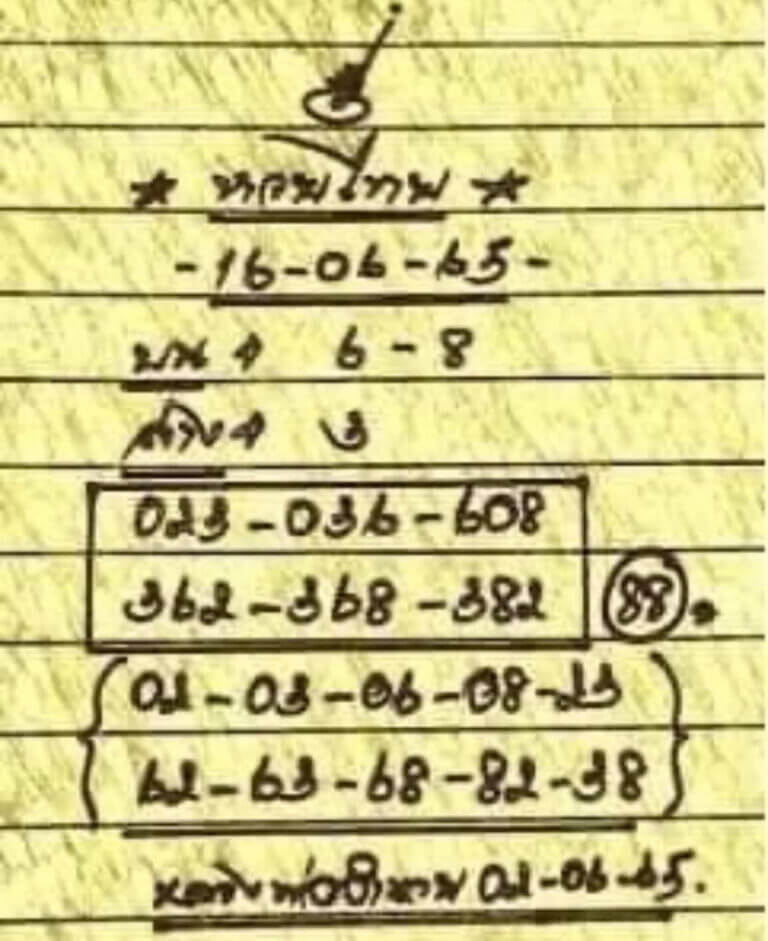 -16-06-65-
บน 6-8
ล่าง
023-036-608
362-368-382 88.
02-03-06-08-23
62-63-68-82-38
02-06-65.